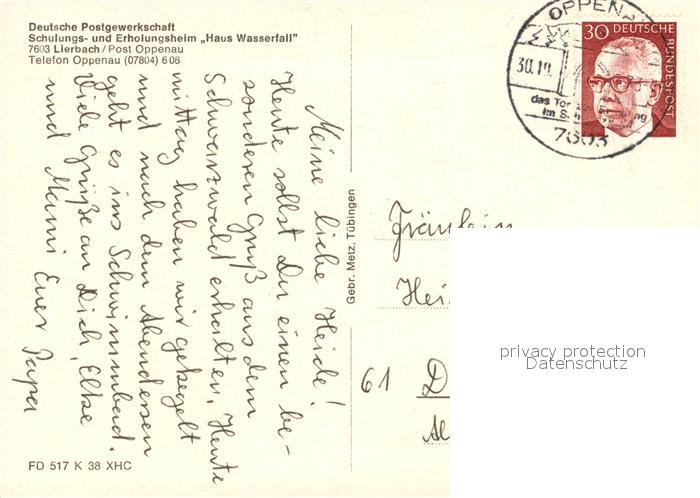 Deutsche Postgewerkschaft
Schulungs- und Erholungsheim „Haus Wasserfall"
7603 Lierbach/Post Oppenau
Telefon Oppenau (07804) 6 06
Meine liebe Heide!
Heute sollst Du einen be-
sonderen Gruß aus dem
Schwarzwald erhalten. Heute
mittag haben wir gekegelt
und nach dem Abendessen
geht es ins Schwimmbad.
Viele Grüße an Dich, Elke
und Mami Euer Papa
FD 517 K 38 XHC
Gebr. Metz, Tübingen
OPPENAU
30.10.
das Tor
im
7603
30 DEUTSCHE
BUNDESPOST
Fräulein
Hei
61 D
Al
privacy protection
Datenschutz